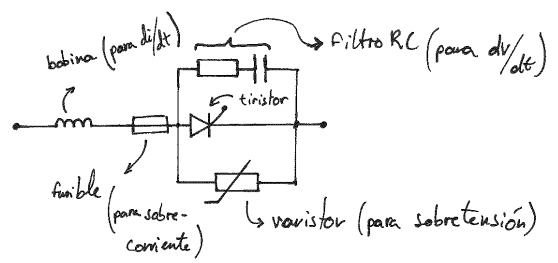 bobina (para di/dt)
filtro RC (para dv/dt)
tiristor
fusible
(para sobre-
corriente)
varistor (para sobretensión)